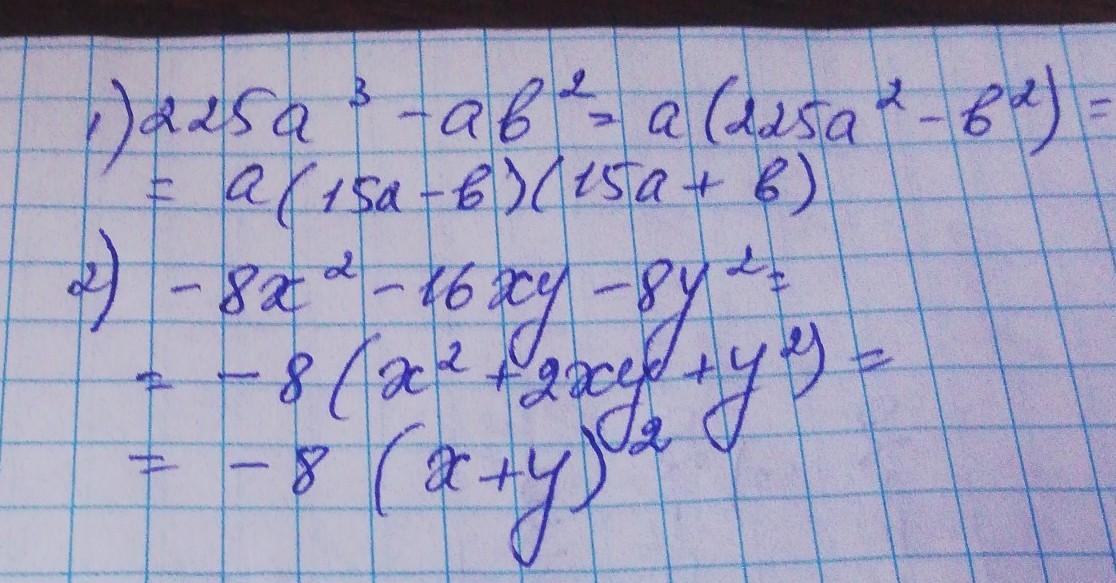 1) 225a³ - ab² = a(225a² - b²) =
= a(15a - b)(15a + b)
2) -8x² - 16xy - 8y² =
= -8(x² + 2xy + y²) =
= -8(x+y)²